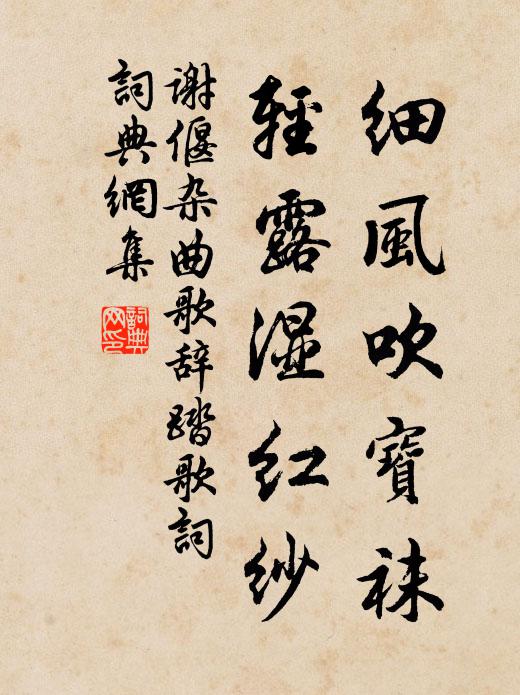 細風吹寶袜
輕露濕紅紗
谢偃杂曲歌辞踏歌詞
詞典網集
詞典网印